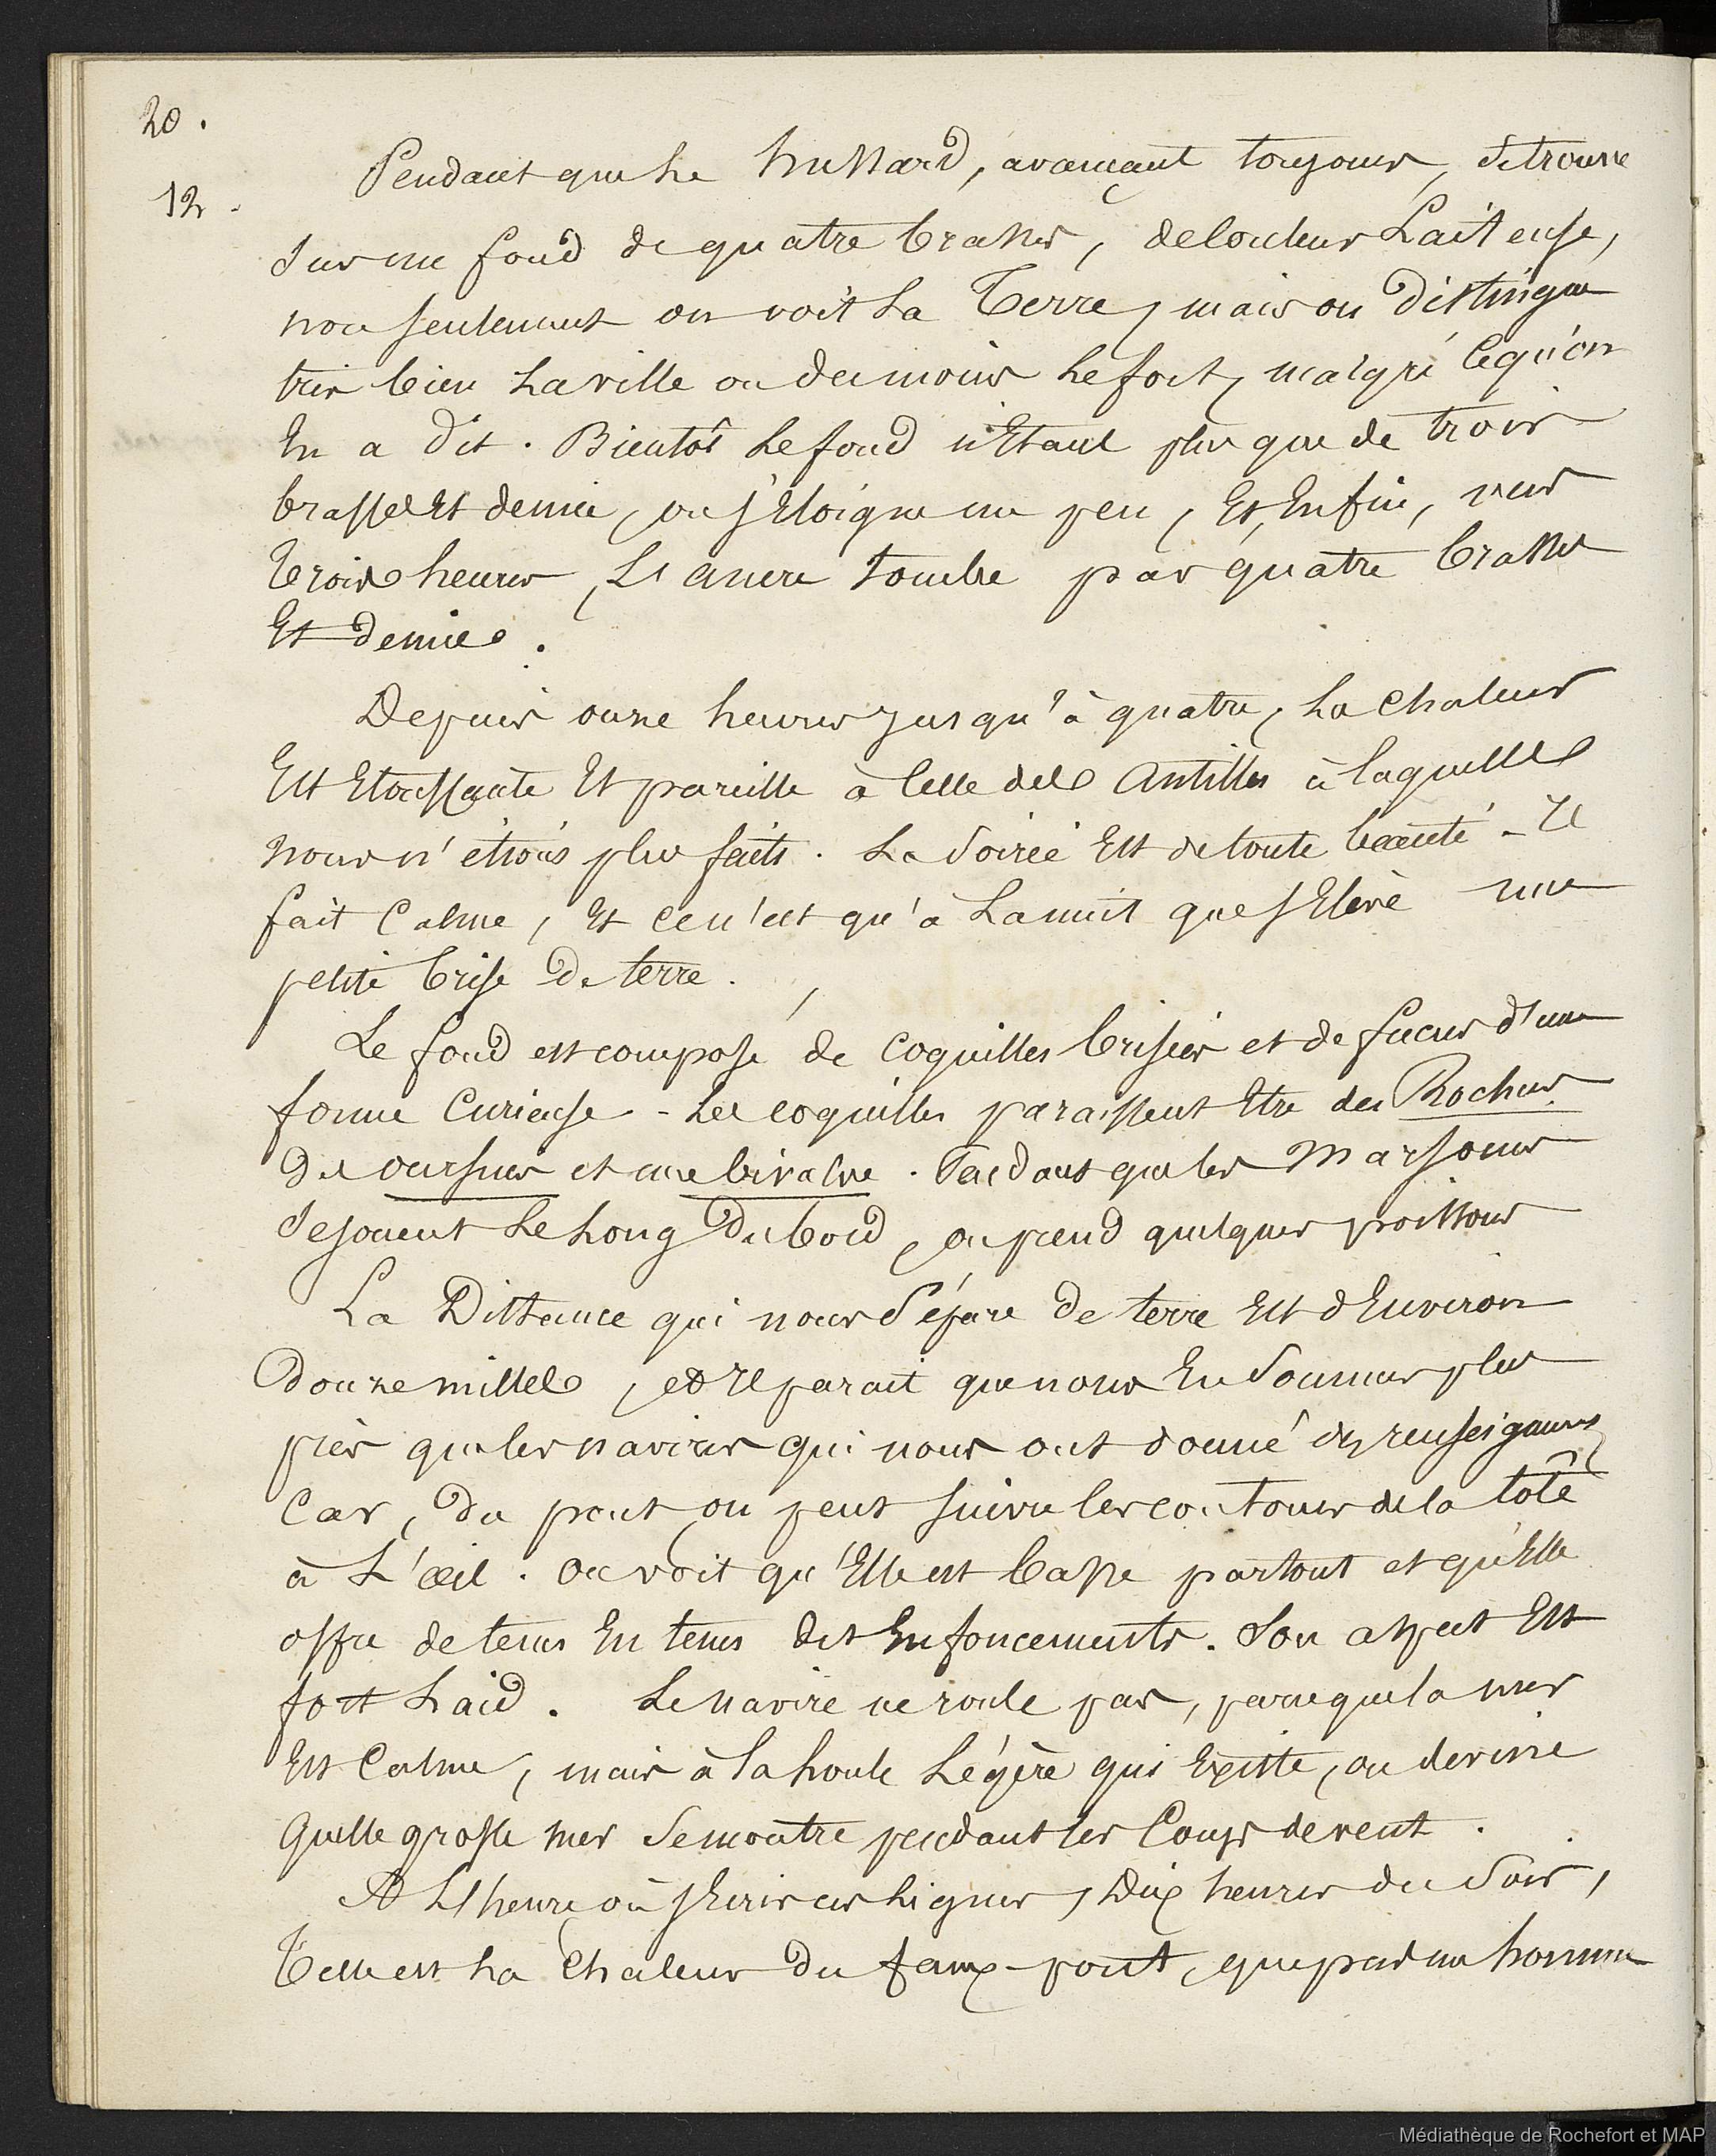 20.
12.
Pendant que le hussard, avançant toujours, se trouve
sur un fond de quatre brasses, de couleur Laiteuse,
non seulement on voit La Terre, mais on distingue
très bien La ville ou du moins Le fort, malgré ce qu'on
En a dit. Bientôt Le fond n'Etant plus que de trois
brasses Et demie, on s'Eloigne un peu, Et Enfin, vers
Trois heures, L'ancre tombe par quatre brasses
Et demie.
Depuis onze heures jusqu'à quatre, La chaleur
Est Etouffante Et pareille à Celle des Antilles à laquelle
nous n'étions plus faits. La Soirée Est de toute beauté - Il
fait Calme, Et ce n'est qu'à La nuit que s'Elève une
petite brise de terre.
Le fond est composé de coquilles brisées et de fucus d'une
forme Curieuse - Les coquilles paraissent Etre des Rochers
Des oursins et une bivalve. Pendant que les Marsouins
Se jouent Le Long du bord, on prend quelques poissons
La Distance qui nous Sépare de terre Est d'Environ
Douze milles, et Il parait que nous En Sommes plus
près que les navires qui nous ont donné des renseignemts
Car, du pont, on peut suivre les contours de la Côte
à L'œil. On voit qu'Elle est basse partout et qu'Elle
offre de tems En tems des Enfoncements. Son aspect Est
fort Laid. Le navire ne roule pas, parceque la mer
Est Calme, mais à la houle Légère qui Existe, on devine
quelle grosse mer Se montre pendant les Coups de vent.
A L'heure où j'Ecris ces Lignes, Dix heures du Soir,
Telle est La Chaleur du faux-pont, que pas un homme
Médiathèque de Rochefort et MAP